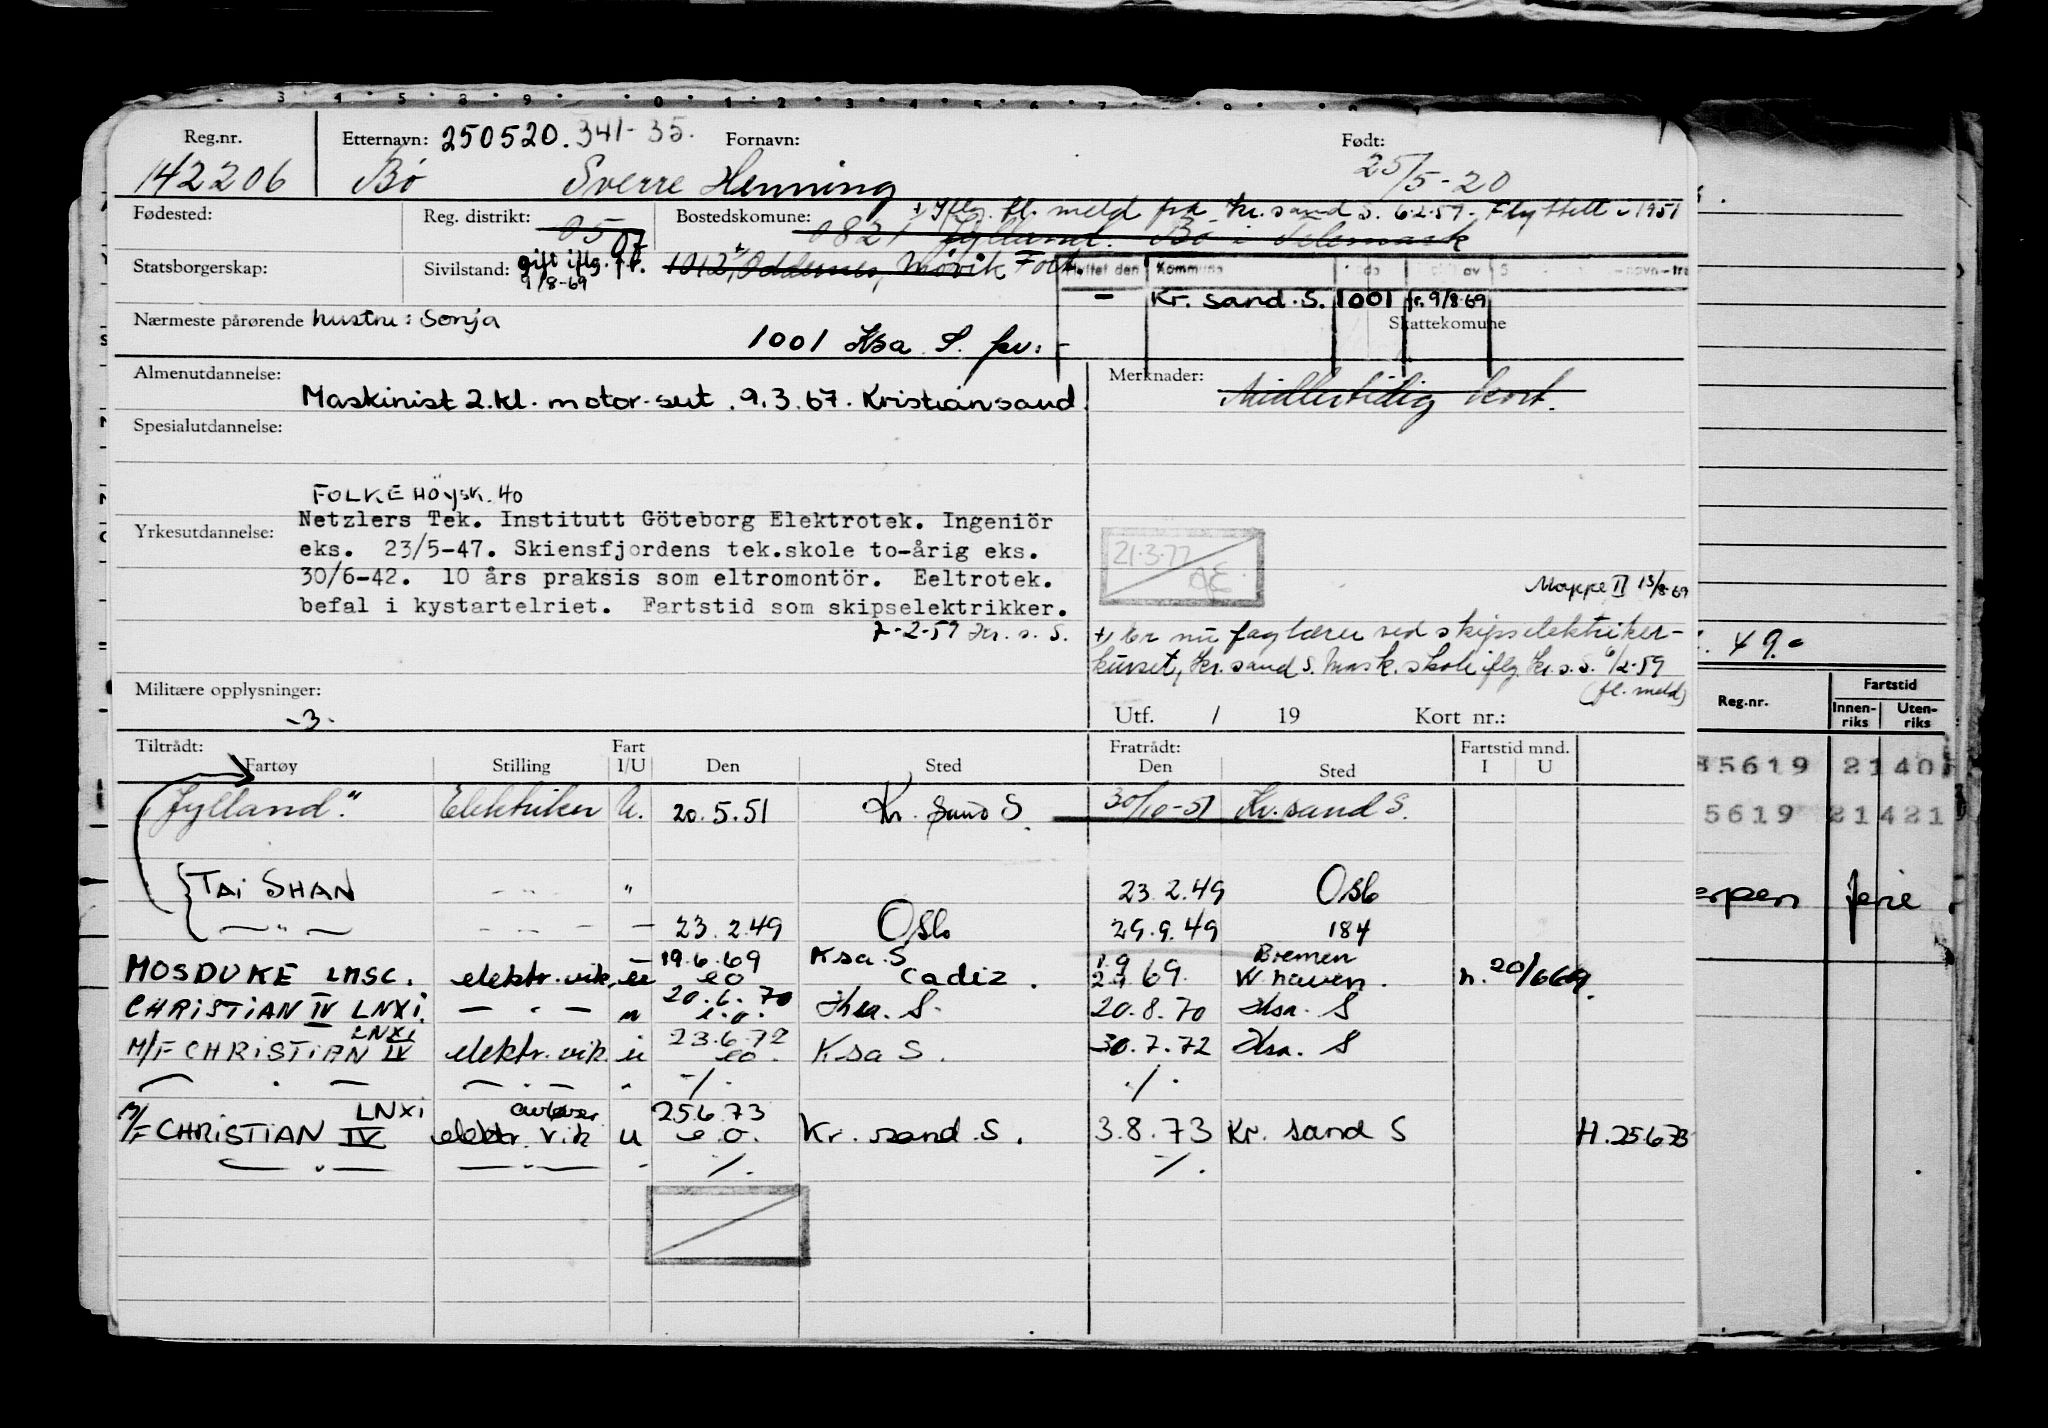 Reg.nr. Etternavn: 250520.341-35. Fornavn: Født:
142206 Bø Sverre Henning 25/5-20
Fødested: Reg. distrikt: 05 07 Bostedskomune: +, Iflg. fl. meld fra Kr.sand S. 6.2.59. Flyttett i 1951
0821 Jylland. Bø i Telemark
Statsborgerskap: Sivilstand: gift iflg. f.r. 9/8-69 1012, Oddernes, Møvik Fort
Kommune
– Kr. sand. S. 1001 fr. 9/8-69
Nærmeste pårørende hustru: Sonja Skattekomune
1001 Ksa. S. fr.: –
Almenutdannelse: Merknader: Midlertidig kort.
Maskinist 2.kl. motor-sert. 9.3.67. Kristiansand
Spesialutdannelse:
FOLKEHÖYSK. 40
Yrkesutdannelse: Netzlers Tek. Institutt Göteborg Elektrotek. Ingeniör
eks. 23/5-47. Skiensfjordens tek.skole to-årig eks.
30/6-42. 10 års praksis som eltromontör. Eeltrotek.
befal i kystartelriet. Fartstid som skipselektrikker.
7-2-59 Kr. s. S.
21.3.77
Mappe II 13/8-69
+, Er nu faglærer ved skipselektriker-
kurset, Kr.sand S. Mask.skole iflg. Kr.s.S. 6/2-59
(fl. meld)
Militære opplysninger:
-3-
Utf. / 19 Kort nr.:
Tiltrådt: Fart Fratrådt: Fartstid mnd.
Fartøy Stilling I/U Den Sted Den Sted I U
"Jylland" Elektriker U. 20.5.51 Kr. sand S. 30/10-51 Kr.sand S.
TAI SHAN - " - " 23.2.49 Oslo
— " — - " - – 23.2.49 Oslo 29.9.49 184
MOSDUKE LMSC. elektr.vik. u 19.6.69 eo Ksa.S Cadiz. 1.9 2.9 69. Bremen W.haven. h. 20/6 69.
CHRISTIAN IV LNXI. — " — u 20.6.70 e.o. Ksa. S. 20.8.70 Ksa. S
M/F CHRISTIAN IV LNXI elektr.vik. u 23.6.72 eo. Ksa S. 30.7.72 Ksa. S
— " — — " — " -/. ./.
M/F CHRISTIAN IV LNXI elektr. vik avløser u 25.6.73 e.o. Kr. sand. S. 3.8.73 Kr. sand S H. 25.6.73
— " — — " — - ./. ./.
. 49.
Reg.nr. Fartstid
Innen-riks Uten-riks
85619 2140
5619 21421
erpen ferie